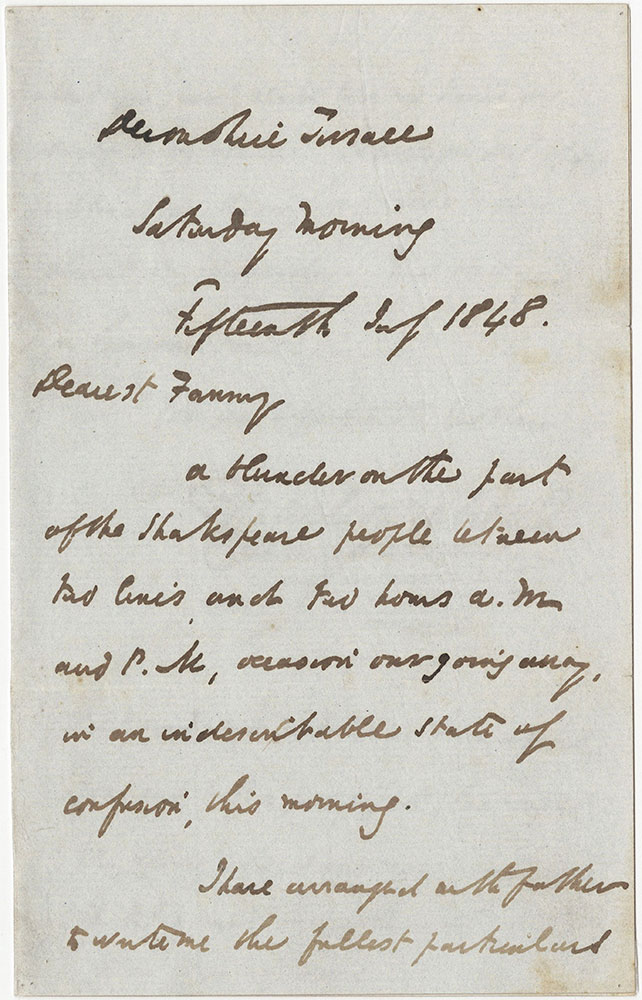 Devonshire Terrace
Saturday Morning
Fifteenth July 1848.
Dearest Fanny
a blunder on the part
of the Shakspeare people between
two lines, and two hours a.m
and P.M, occasions our going away,
in an indescribable state of
confusion, this morning.
I have arranged with father
to write me the fullest particulars